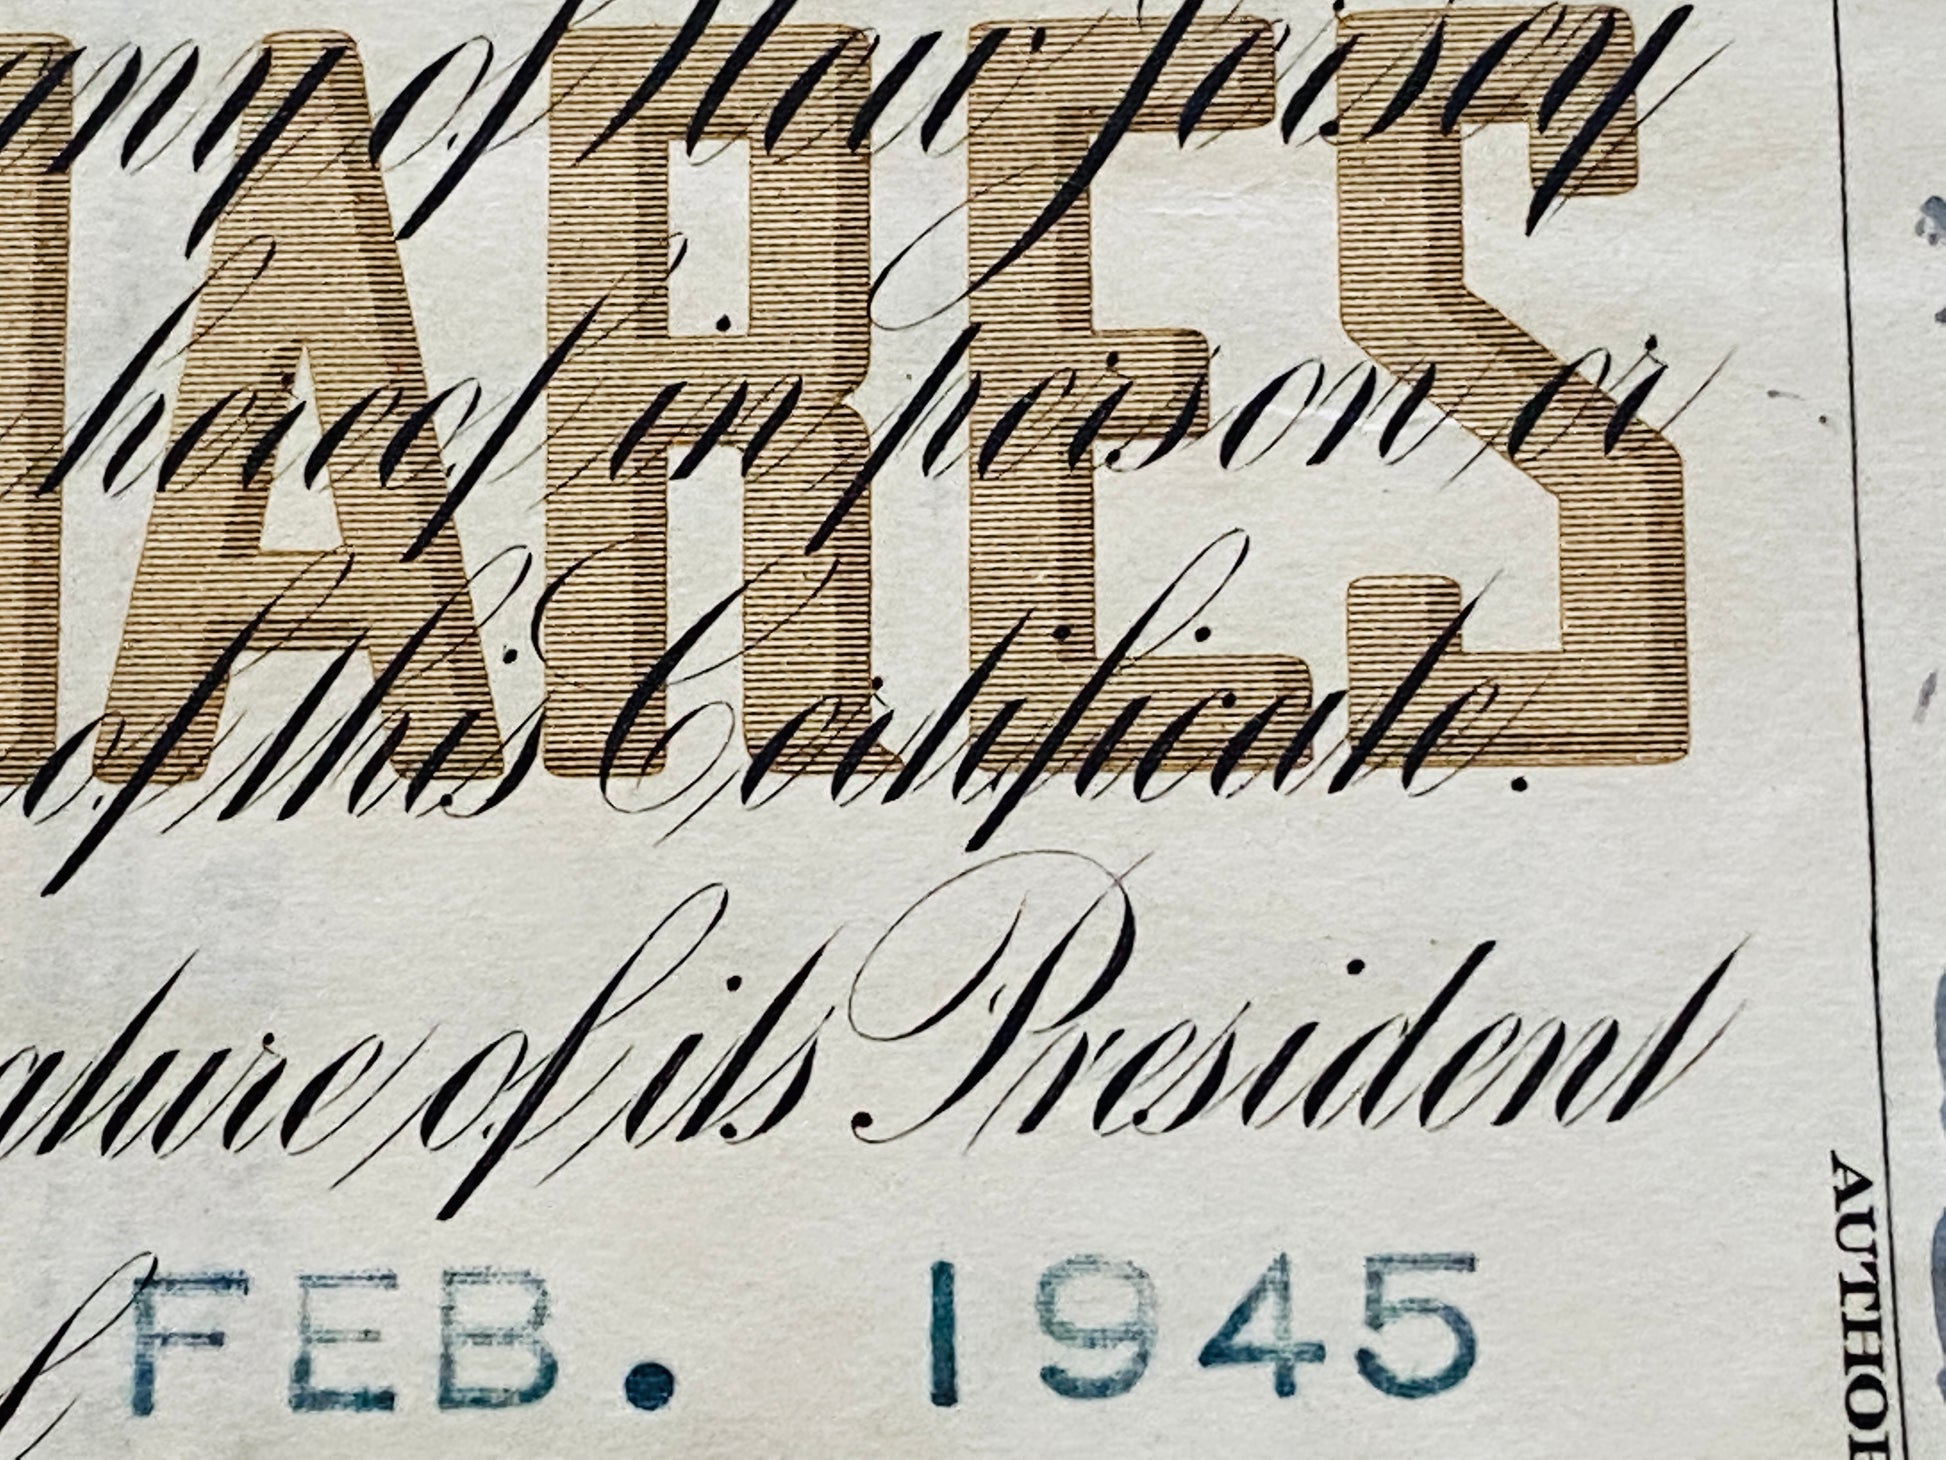 ARES
any of New Jersey
hereof in person or
of this Certificate.
ature of its President
FEB. 1945
AUTHOR